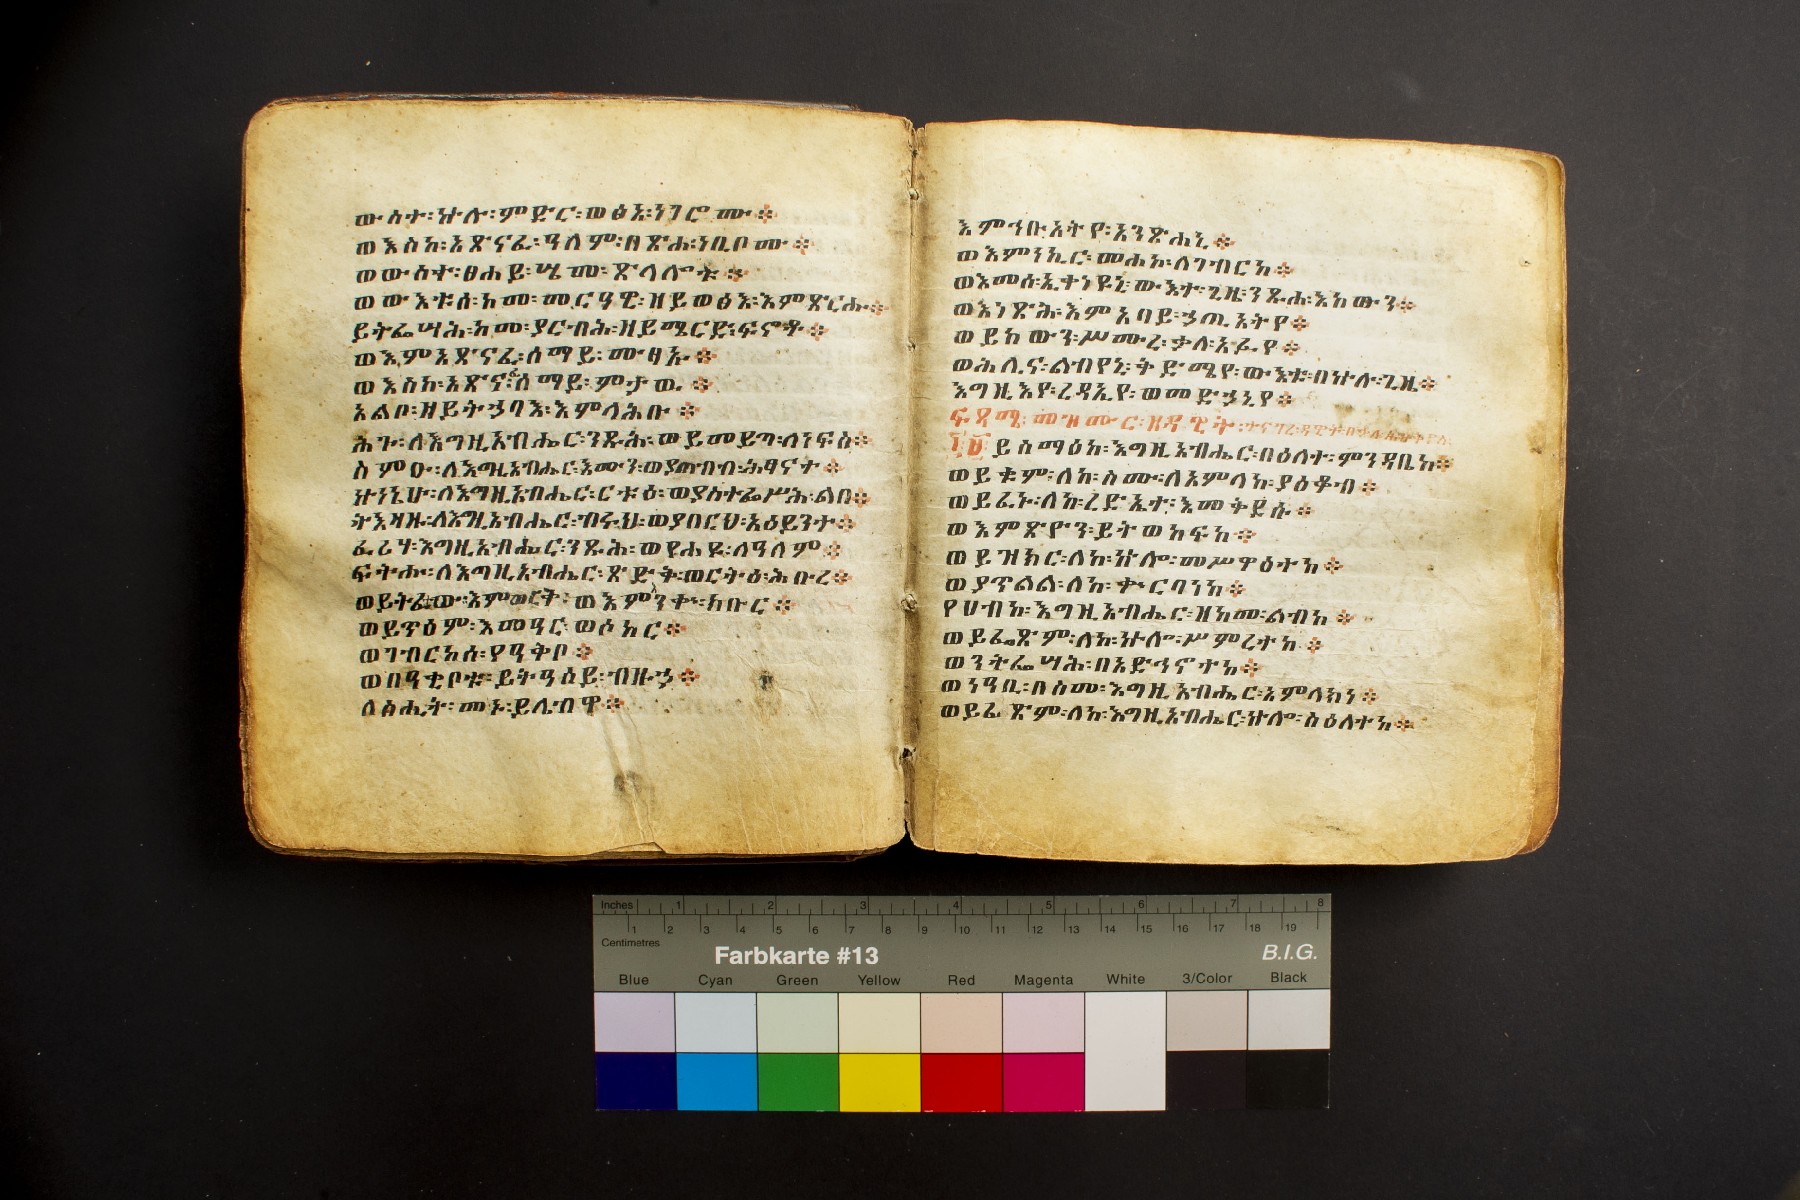 ውስተ፡ኵሉ፡ምድር፡ወፅአ፡ነገሮሙ፨
ወእስከ፡አጽናፈ፡ዓለም፡በጽሐ፡ነቢቦሙ፨
ወውስተ፡ፀሐይ፡ሤመ፡ጽላሎቱ፨
ወውእቱሰ፡ከመ፡መርዓዊ፡ዘይወፅእ፡እምጽርሑ፨
ይትፌሣሕ፡ከመ፡ያርብሕ፡ዘይሜርድ፡ፍኖቶ፨
ወእምአጽናፈ፡ሰማይ፡ሙፃኡ፨
ወእስከ፡አጽናፈ፡ሰማይ፡ምታዉ፨
አልቦ፡ዘይትኃባእ፡እምላሕቡ፨
ሕጉ፡ለእግዚአብሔር፡ንጹሕ፡ወይመይጣ፡ለነፍስ፨
ስምዑ፡ለእግዚአብሔር፡እሙን፡ወያጠብብ፡ሕፃናተ፨
ኵነኔሁ፡ለእግዚአብሔር፡ርቱዕ፡ወያስተፌሥሕ፡ልበ፨
ትእዛዙ፡ለእግዚአብሔር፡ብሩህ፡ወያበርህ፡አዕይንተ፨
ፈሪሃ፡እግዚአብሔር፡ንጹሕ፡ወየሐዩ፡ለዓለም፨
ፍትሑ፡ለእግዚአብሔር፡ጽድቅ፡ወርትዕ፡ሕቡረ፨
ወይትፈተው፡እምወርቅ፡ወእምዕንቍ፡ክቡር፨
ወይጥዕም፡እመዓር፡ወሶከር፨
ወገብርከሰ፡የዓቅቦ፨
ወበዓቂቦቱ፡ይትዓሰይ፡ብዙኃ፨
ለስሒት፡መኑ፡ይሌብዋ፨
እምኅቡአትየ፡አንጽሐኒ፨
ወእምነኪር፡መሐክ፡ለገብርከ፨
ወእመሰ፡ኢቀነዩኒ፡ውእተ፡ጊዜ፡ንጹሐ፡እከውን፨
ወእነጽሕ፡እምአባይ፡ኃጢአትየ፨
ወይከውን፡ሥሙረ፡ቃለ፡አፉየ፨
ወሕሊና፡ልብየኒ፡ቅድሜየ፡ውእቱ፡በኵሉ፡ጊዜ፨
እግዚእየ፡ረዳኢየ፡ወመድኃኒየ፨
ፍጻሜ፡መዝሙር፡ዘዳዊት፡
፲፱ ይስማዕከ፡እግዚአብሔር፡በዕለተ፡ምንዳቤከ፨
ወይቁም፡ለከ፡ስሙ፡ለአምላከ፡ያዕቆብ፨
ወይፈኑ፡ለከ፡ረድኤተ፡እመቅደሱ፨
ወእምጽዮን፡ይትወከፍከ፨
ወይዝክር፡ለከ፡ኵሎ፡መሥዋዕተከ፨
ወያጥልል፡ለከ፡ቍርባነከ፨
የሀብከ፡እግዚአብሔር፡ዘከመ፡ልብከ፨
ወይፈጽም፡ለከ፡ኵሎ፡ሥምረተከ፨
ወንትፌሣሕ፡በአድኅኖተከ፨
ወነዓቢ፡በስመ፡እግዚአብሔር፡አምላክነ፨
ወይፈጽም፡ለከ፡እግዚአብሔር፡ኵሎ፡ስዕለተከ፨
Inches 1 2 3 4 5 6 7 8
1 2 3 4 5 6 7 8 9 10 11 12 13 14 15 16 17 18 19
Centimetres
Farbkarte #13 B.I.G.
Blue Cyan Green Yellow Red Magenta White 3/Color Black